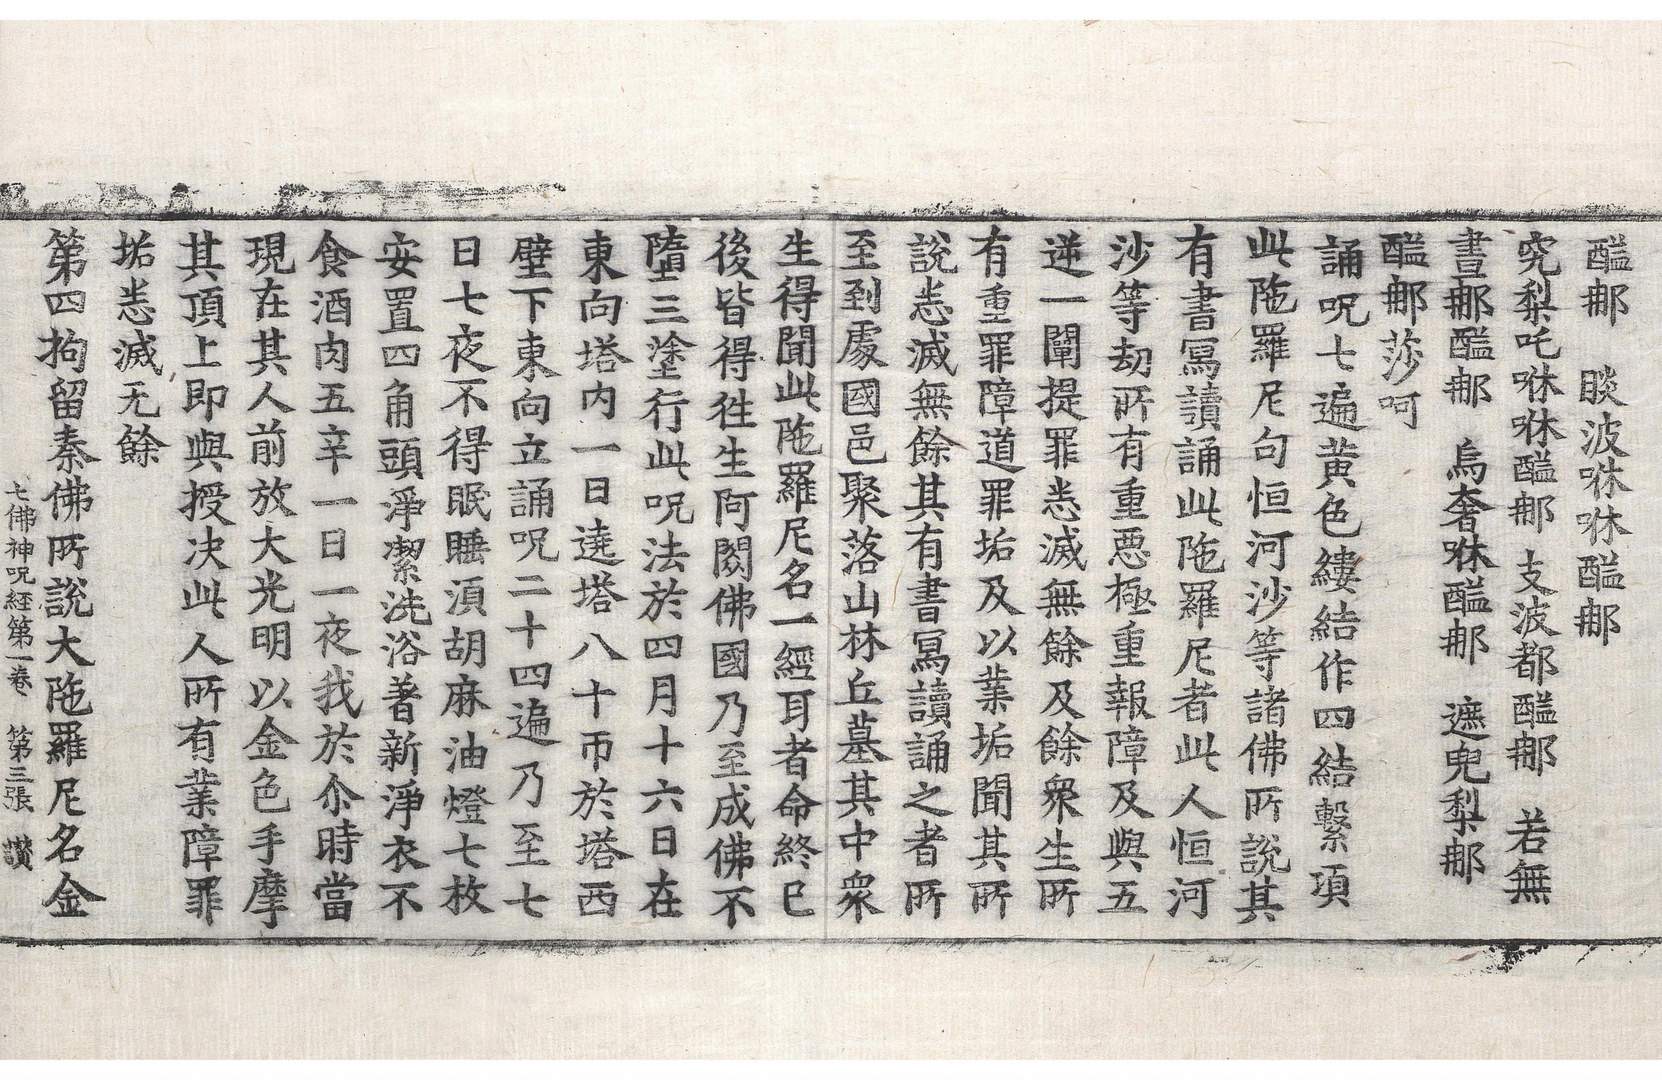 醯䣛　睒波咻咻醯䣛
究梨吒咻咻醯䣛　支波都醯䣛　若無
晝䣛醯䣛　烏奢咻醯䣛　遮兜梨䣛
醯䣛莎呵
誦呪七遍黄色縷結作四結繫項
此陁羅尼句恒河沙等諸佛所說其
有書寫讀誦此陁羅尼者此人恒河
沙等劫所有重惡極重報障及與五
逆一闡提罪悉滅無餘及餘衆生所
有重罪障道罪垢及以業垢聞其所
說悉滅無餘其有書寫讀誦之者所
至到處國邑聚落山林丘墓其中衆
生得聞此陁羅尼名一經耳者命終已
後皆得往生阿閦佛國乃至成佛不
墮三塗行此呪法於四月十六日在
東向塔内一日遶塔八十帀於塔西
壁下東向立誦呪二十四遍乃至七
日七夜不得眠睡湏胡麻油燈七枚
安置四角頭淨潔洗浴著新淨衣不
食酒肉五辛一日一夜我於尒時當
現在其人前放大光明以金色手摩
其頂上即與授决此人所有業障罪
垢悉滅无餘
第四拘留秦佛所說大陁羅尼名金
七佛神呪経第一卷　第三張　讃